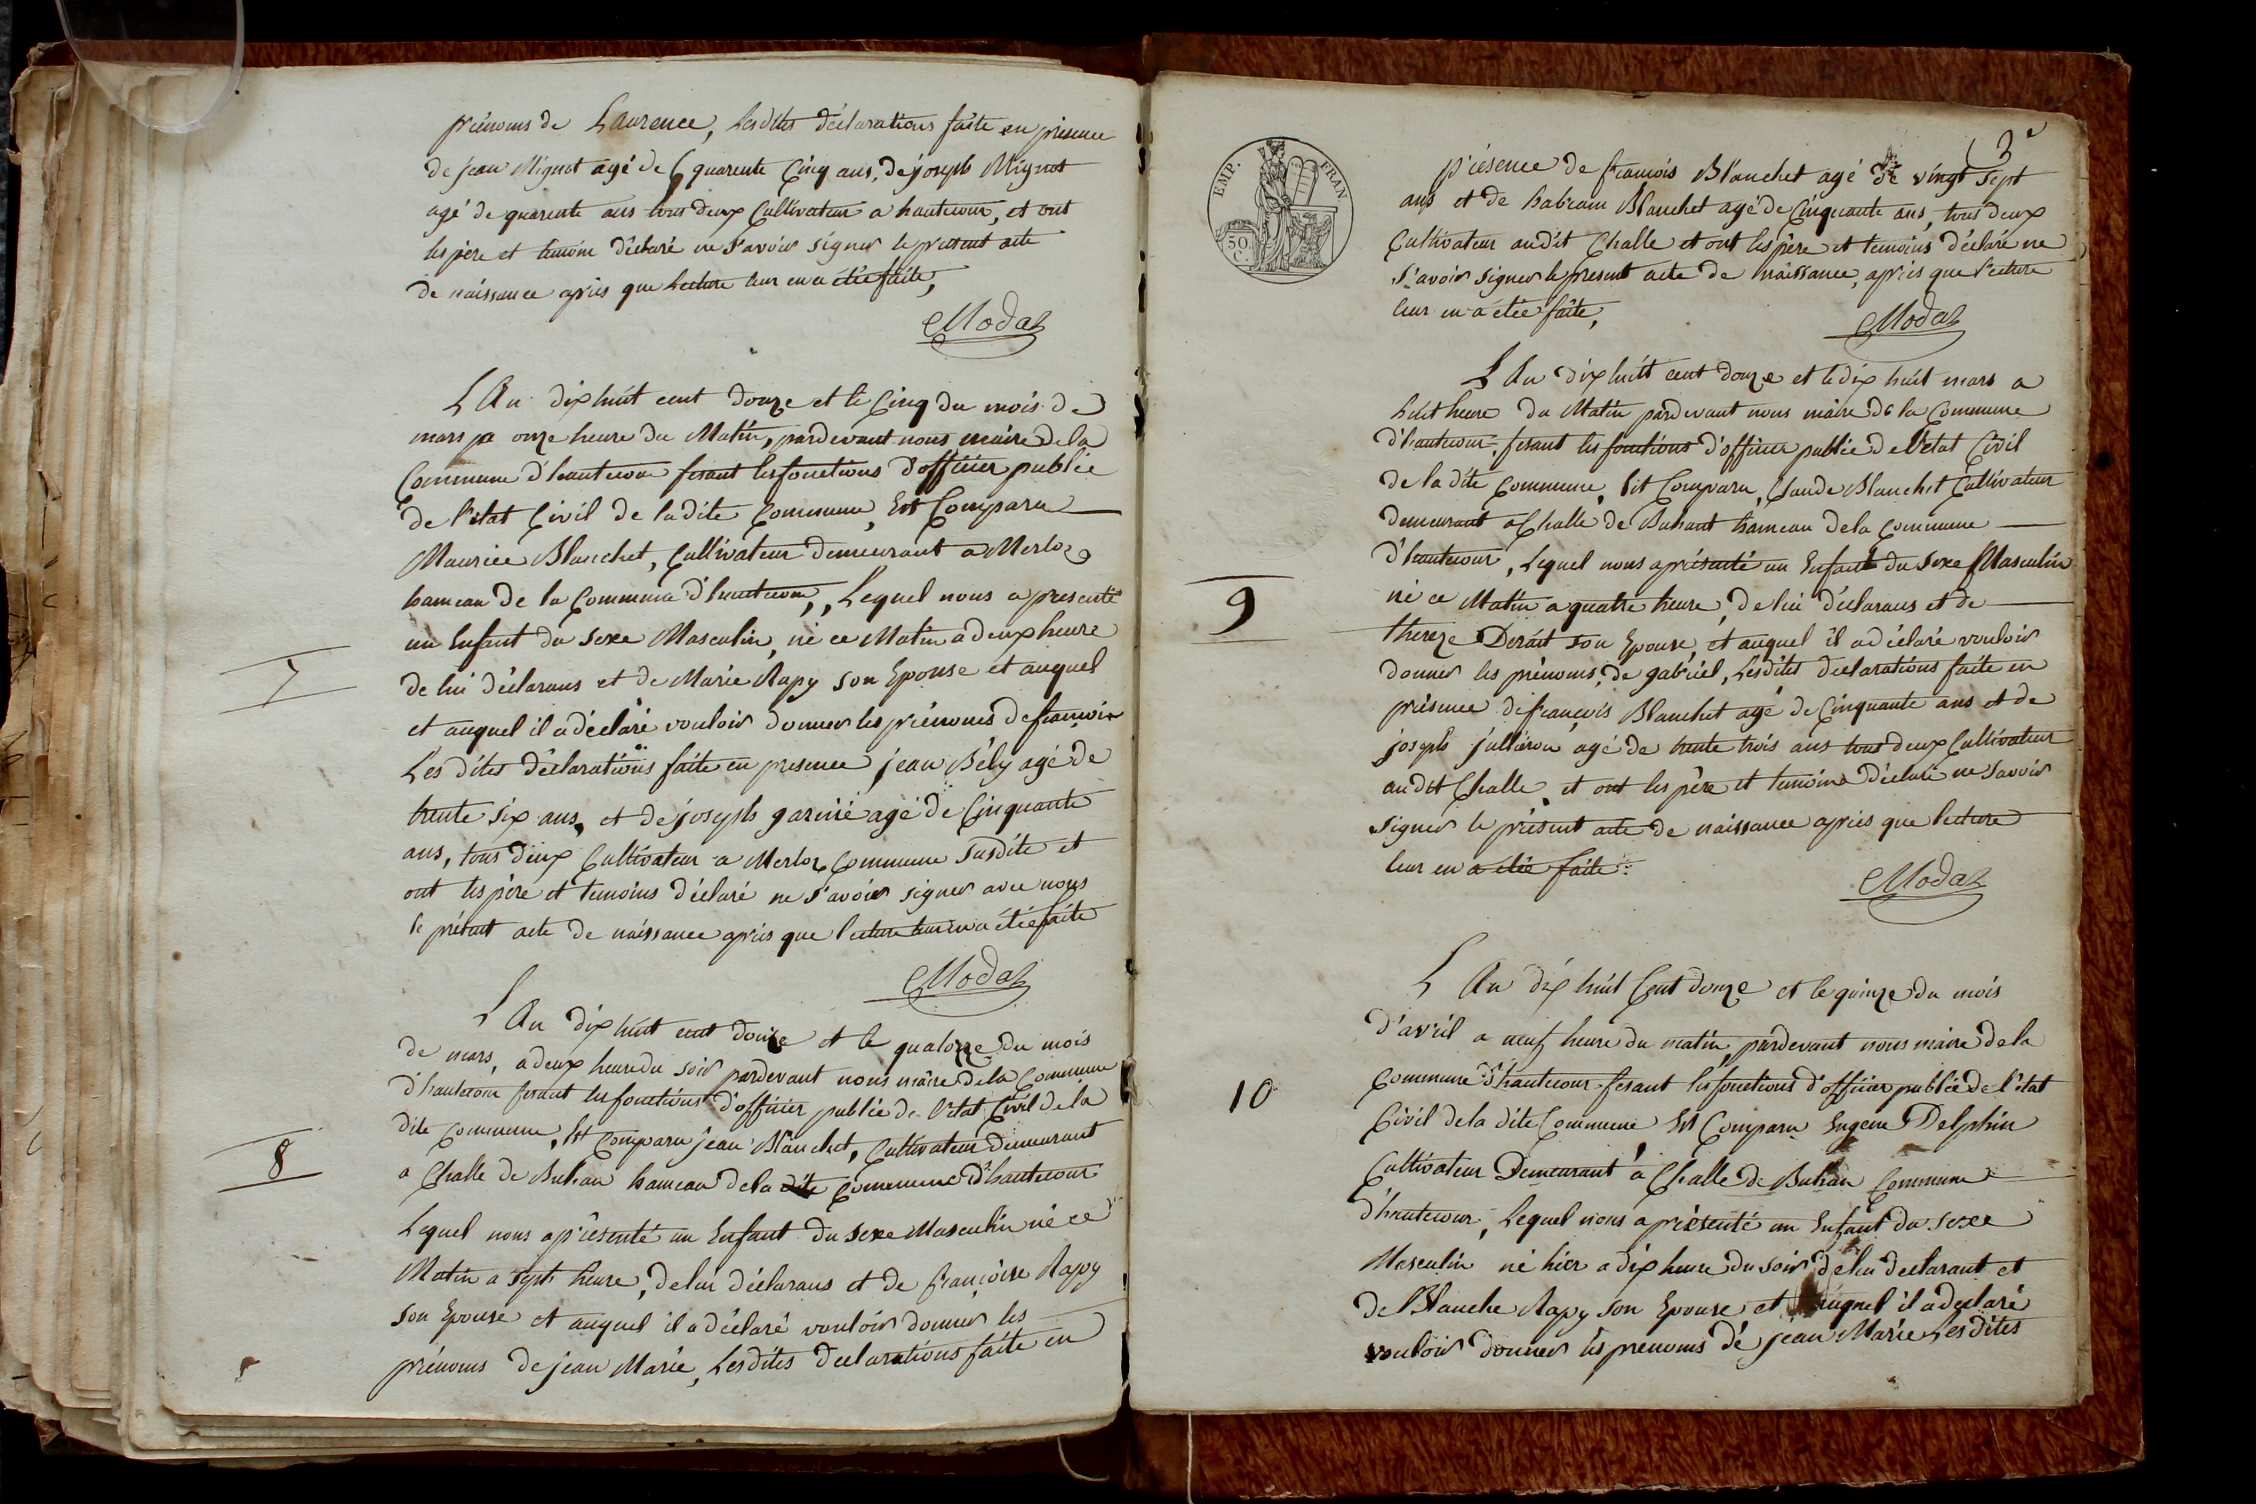 prénoms de Laurence, Lesdites déclarations faite en présence
de jean Mignot agé de quarente Cinq ans, de joseph Mignot
agé de quarente ans tous deux Cultivateur a hautecour, et ont
les père et temoins déclaré ne s'avoir signer le present acte
de naissance après que Lecture leur en a étée faite,
Modaz
L'An dix huit cent douze et le Cinq du mois de
mars a onze heure du Matin, pardevant nous maire de la
Commune d'hautecour fesant les fonctions d'officier public
de l'état Civil de la dite Commune, Est Comparu
Maurice Blanchet, Cultivateur demeurant a Merloz
hameau de la Commune d'hautecour, Lequel nous a presenté
un Enfant du sexe Masculin, né ce Matin a deux heure
de lui déclarans et de Marie Rapy son Epouse et auquel
et auquel il a déclaré vouloir donner les prénoms de françois
Les dites déclarations faite en presence jean Bély agé de
trente six ans, et de joseph garinié agé de Cinquante
ans, tous deux Cultivateur a Merloz Commune susdite et
ont les père et temoins déclaré ne s'avoir signer avec nous
le présent acte de naissance après que lecture leur en a étée faite
Modaz
7
L'An dix huit cent douze et le quatorze du mois
de mars, a deux heure du soir pardevant nous maire de la Commune
d'hautecour fesant les fonctions d'officier public de l'état Civil de la
dite Commune, Est Comparu jean Blanchet, Cultivateur demeurant
a Challe de Buhan hameau de la dite Commune d'hautecour
Lequel nous a présenté un Enfant du sexe Masculin né ce
Matin a sept heure, de lui déclarans et de françoise Rapy
son Epouse et auquel il a déclaré vouloir donner les
prénoms de jean Marie, Lesdites declarations faite en
8
EMP. FRAN
50 C.
3e
présence de françois Blanchet agé de vingt sept
ans et de Blanchet agé de Cinquante ans, tous deux
Cultivateur audit Challe et ont les père et temoins déclaré ne
s'avoir signer le present acte de naissance, après que lecture
leur en a étée faite,
Modaz
L'An dix huitt cent douze et le dix huit mars a
huit heure du Matin pardevant nous maire de la Commune
d'hautecour, fesant les fonctions d'officier public de l'etat Civil
de la dite Commune, Est Comparu, Claude Blanchet Cultivateur
demeurant a Challe de Buhant hameau de la Commune
d'hautecour, Lequel nous a présenté un Enfant du sexe Masculin
né ce Matin a quatre heure, de lui déclarans et de
thereze Derait son Epouse, et auquel il a déclaré vouloir
donner les prénoms, de gabriel, Lesdites declarations faite en
présence de françois Blanchet agé de Cinquante ans et de
joseph jullieron agé de trente trois ans tous deux Cultivateur
audit Challe, et ont les père et temoins déclaré ne s'avoir
signer le présent acte de naissance après que lecture
leur en a étée faite
Modaz
9
L'An dix huit Cent douze et le quinze du mois
d'avril a neuf heure du matin, pardevant nous maire de la
Commune d'hautecour fesant les fonctions d'officier public de l'état
Civil de la dite Commune Est Comparu Eugene Delphin
Cultivateur Demeurant a Challe de Buhan Commune
d'hautecour, Lequel nous a présenté un Enfant du sexe
Masculin né hier a dix heure du soir de lui declarant et
de Blanche Rapy son Epouse et auquel il a declaré
vouloir donner les prenoms de jean Marie Lesdites
10